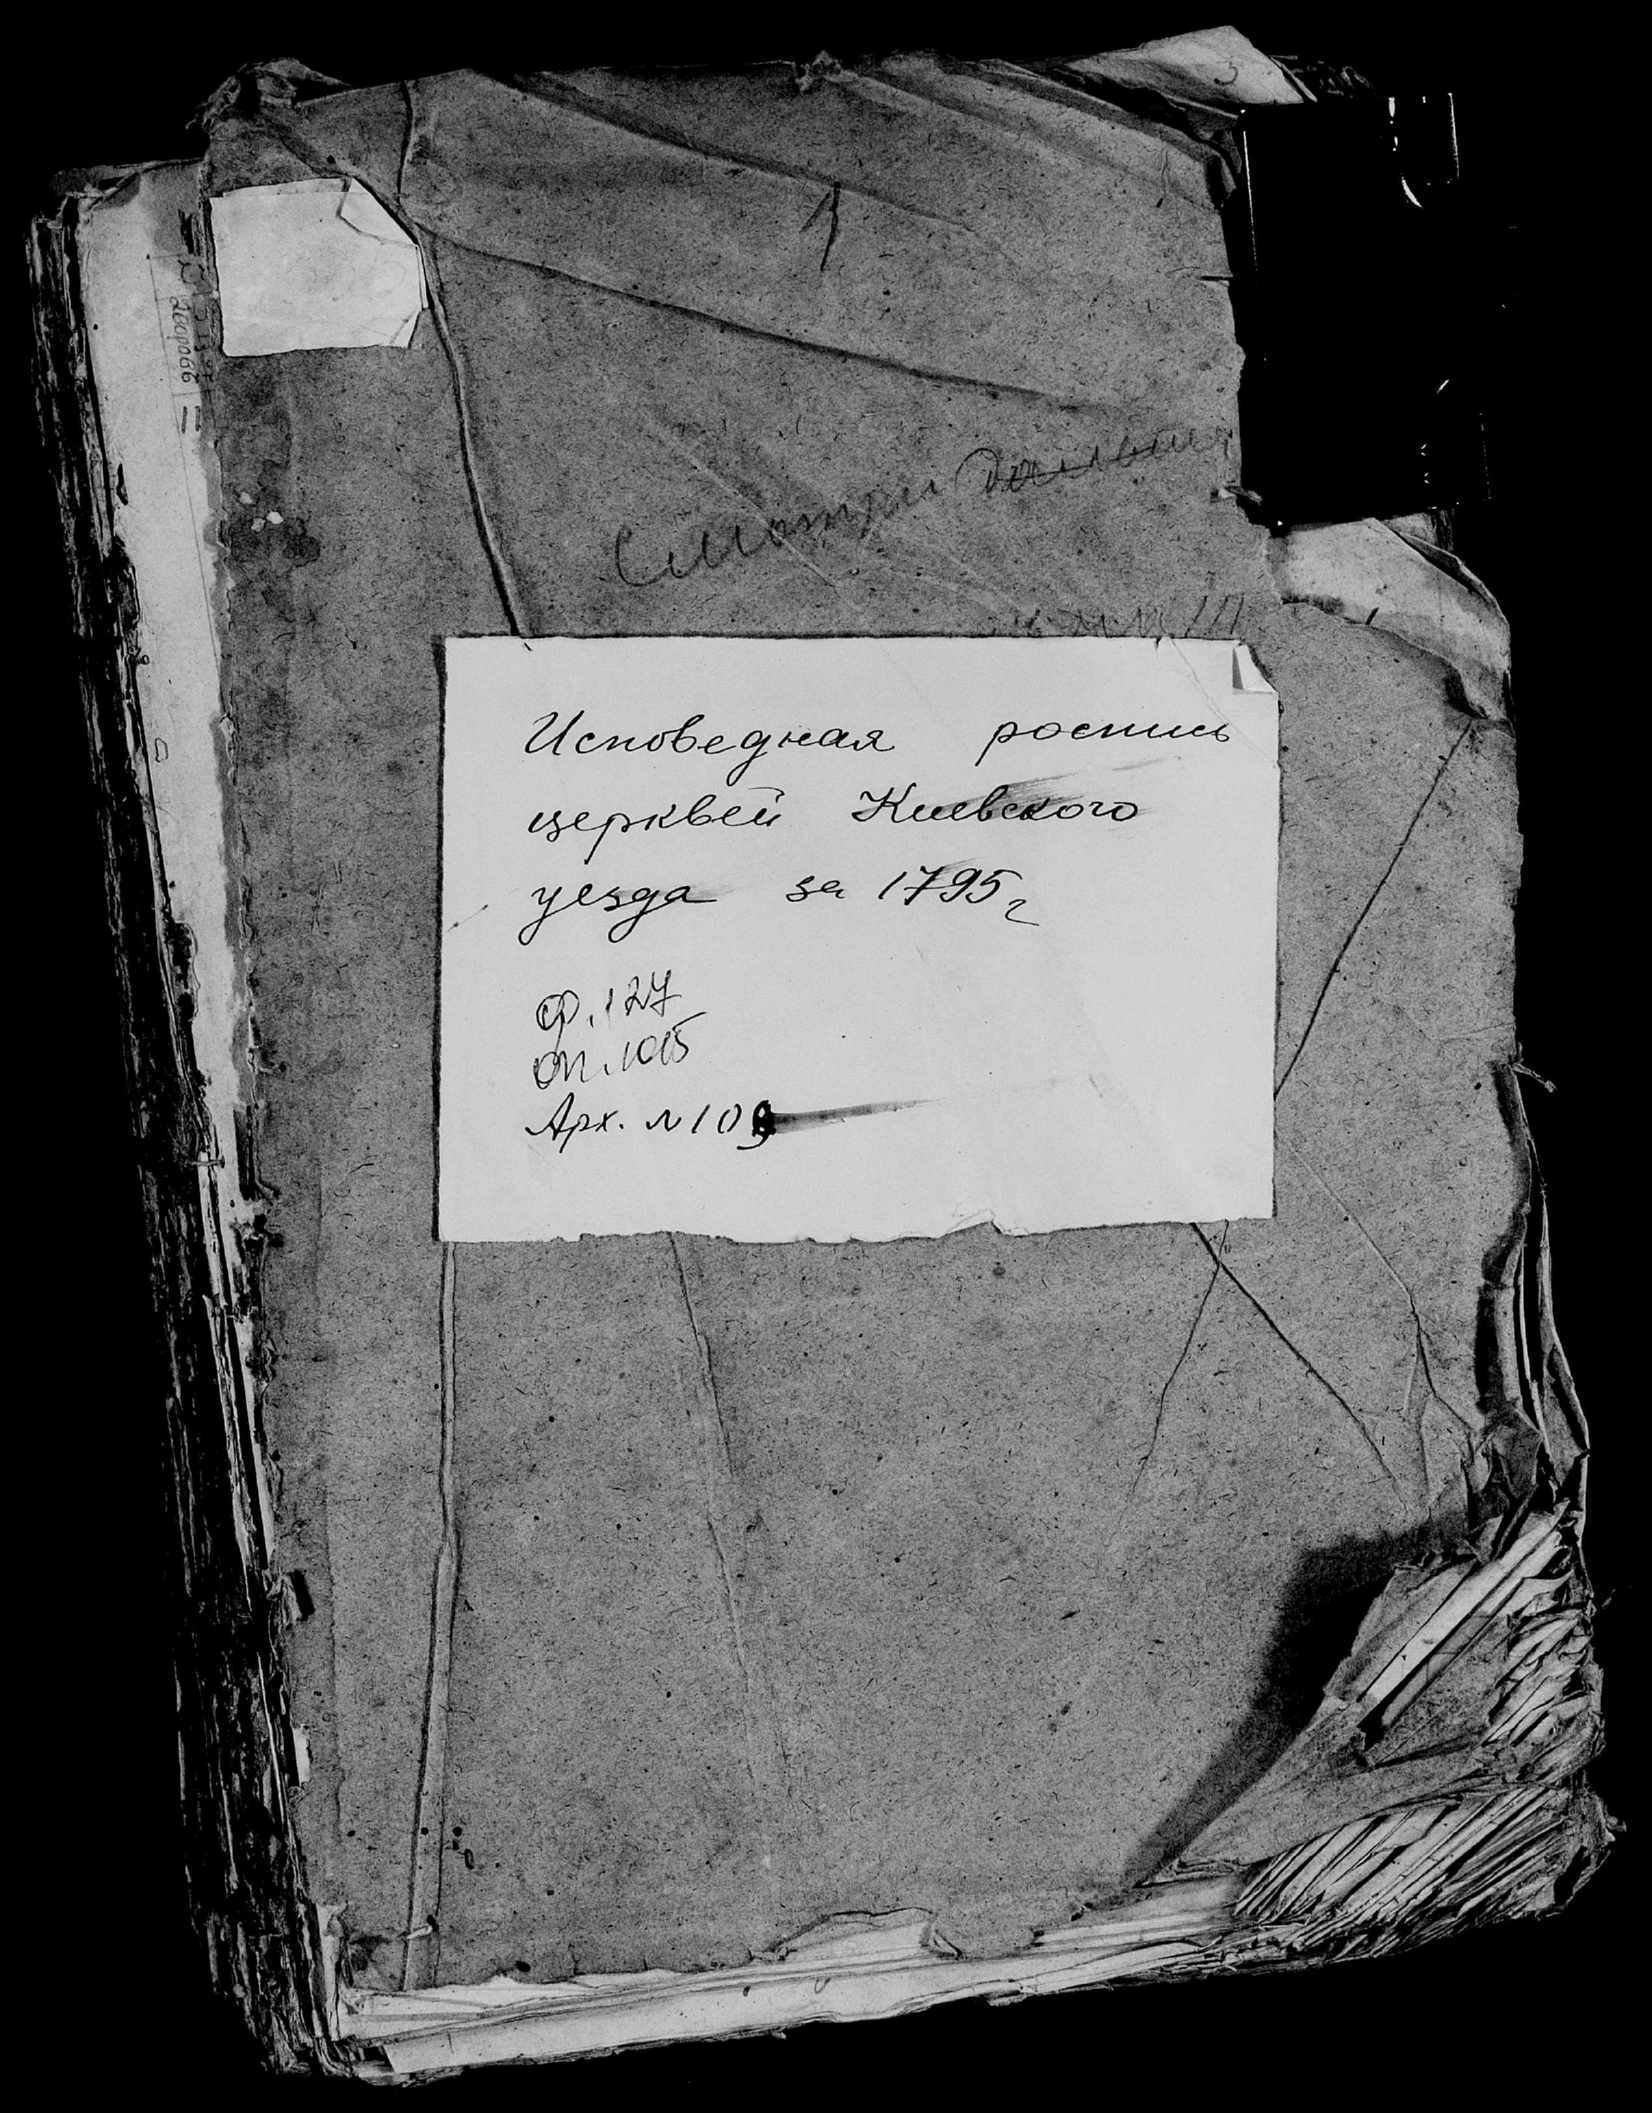 3
1
Смотри
Исповедная роспись
церквей Киевского
уезда за 1795 г
Ф. 127
оп. 1015
Арх. № 109